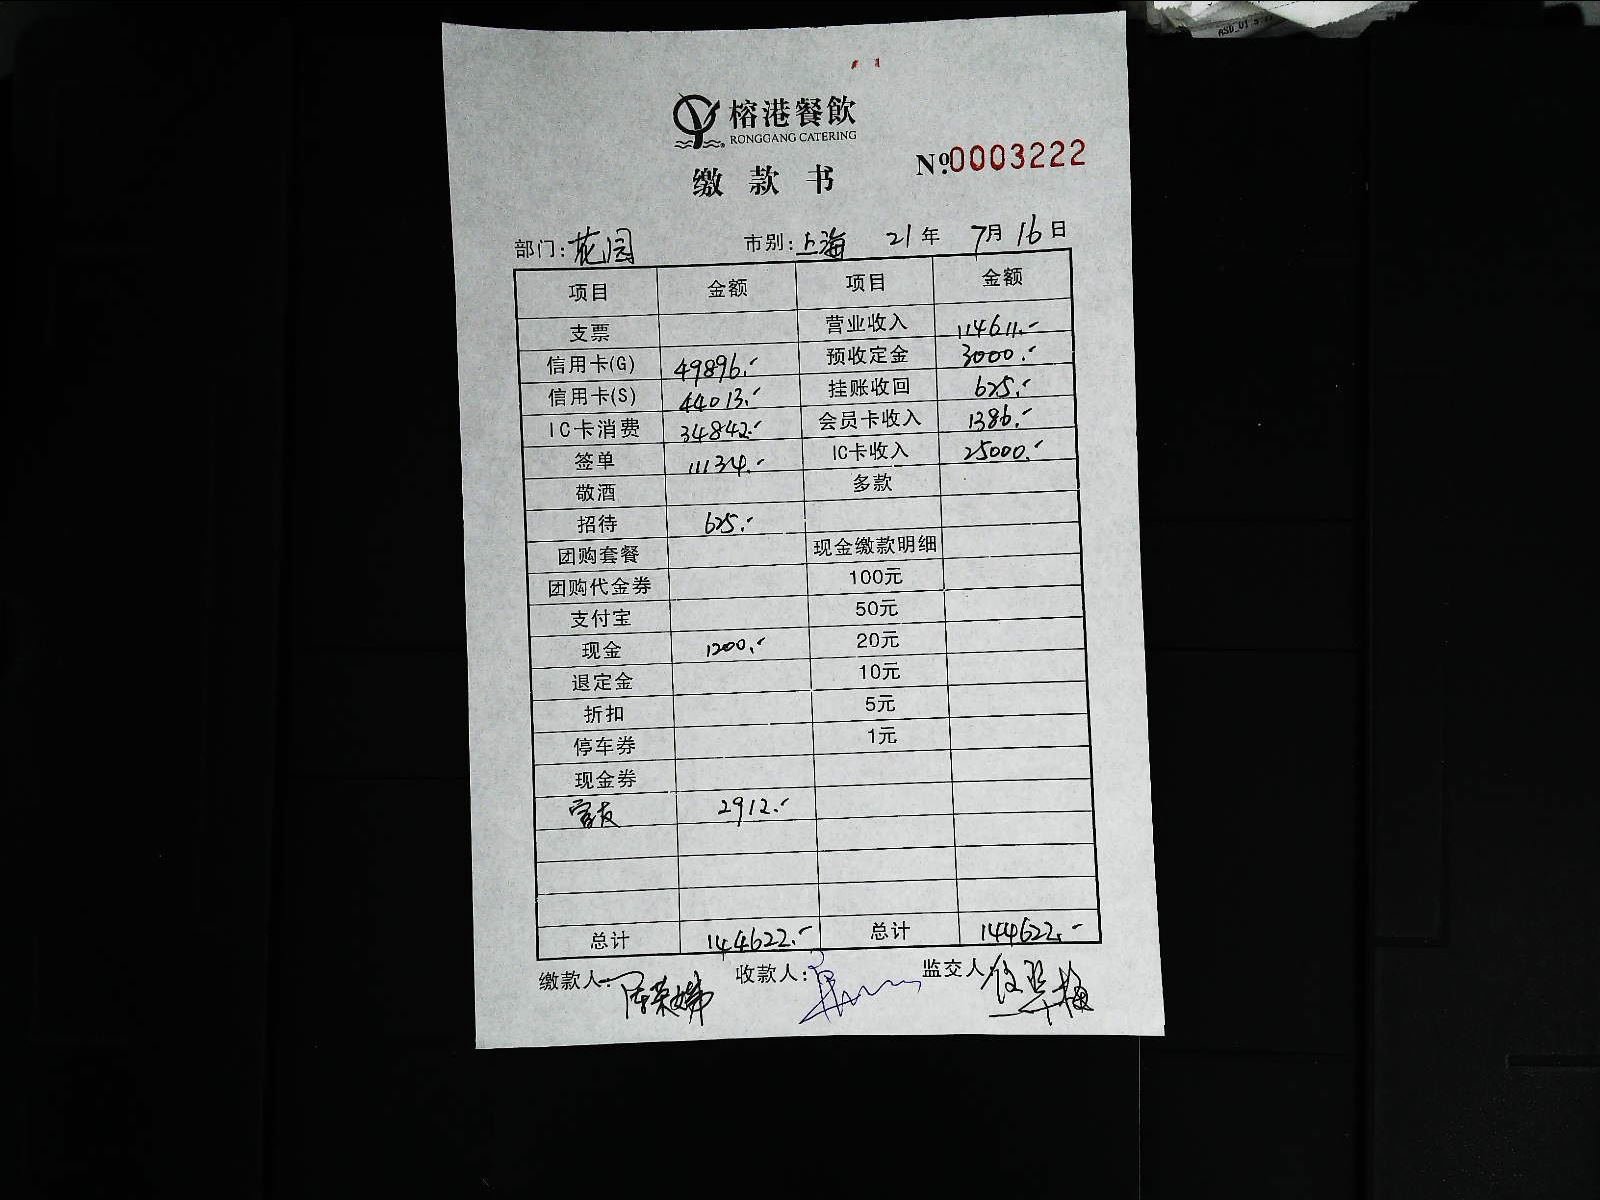 ASD_01.5
榕港餐飲
RONGGANG CATERING
缴款书
№0003222
部门:花园 市别:上海 21年 7月16日
项目 金额 项目 金额
支票 营业收入 114611.-
信用卡(G) 49896.- 预收定金 3000.-
信用卡(S) 44013.- 挂账收回 625.-
IC卡消费 34842.- 会员卡收入 1386.-
签单 11134.- IC卡收入 25000.-
敬酒 多款
招待 625.-
团购套餐 现金缴款明细
团购代金券 100元
支付宝 50元
现金 1200.- 20元
退定金 10元
折扣 5元
停车券 1元
现金券
2912.-
总计 144622.- 总计 144622.-
缴款人: 收款人: 监交人